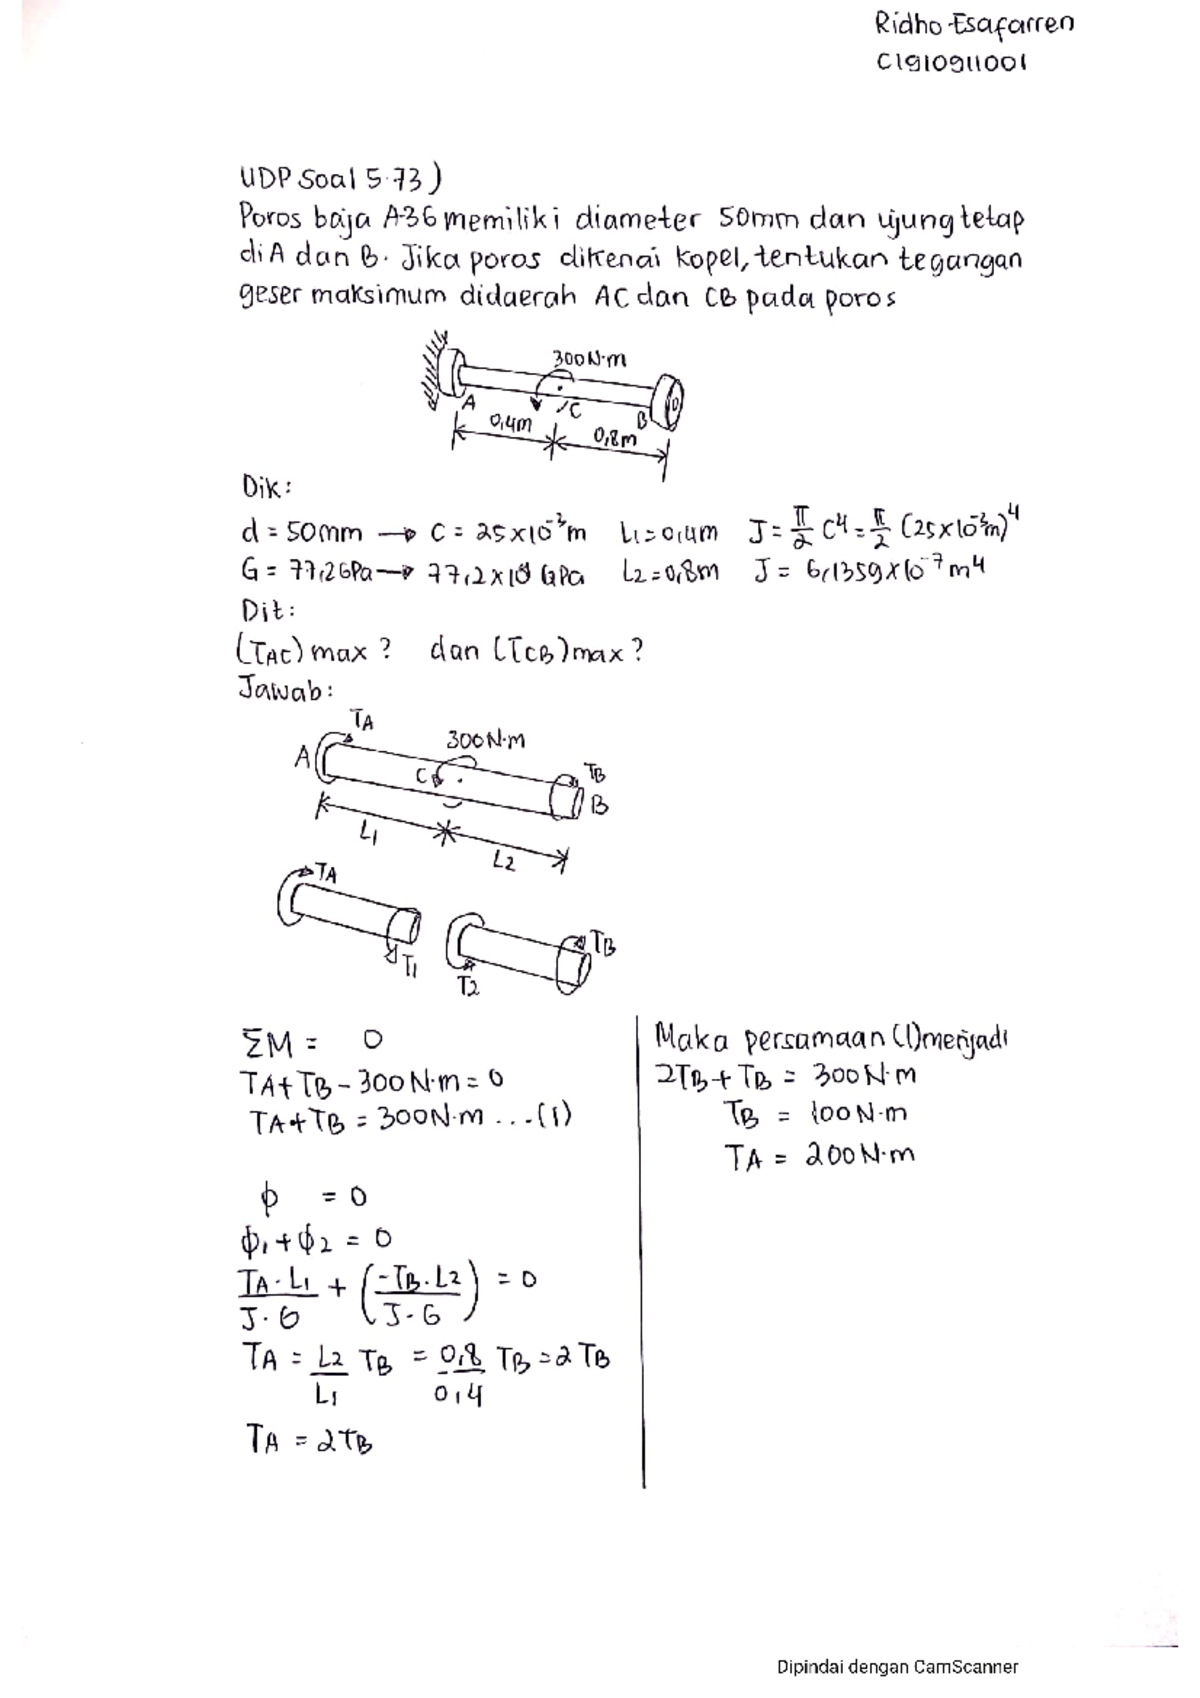 Ridho Esafarren
C1910911001
UDP Soal 5.73)
Poros baja A-36 memiliki diameter 50mm dan ujung tetap
di A dan B. Jika poros dikenai kopel, tentukan tegangan
geser maksimum didaerah AC dan CB pada poros
300 N·m
A
C
B
0,4m
0,8m
Dik:
d = 50mm → C = 25x10⁻³m L₁=0,4m J = π/2 C⁴ = π/2 (25x10⁻³m)⁴
G = 77,2GPa → 77,2x10⁹ GPa L₂=0,8m J = 6,1359x10⁻⁷m⁴
Dit:
(TAC) max ? dan (TCB) max ?
Jawab:
TA
A
300N·m
C
TB
B
L₁
L₂
TA
T₁
TB
T₂
ΣM = 0
TA+TB-300N·m=0
TA+TB=300N·m ...(1)
ϕ = 0
ϕ₁+ϕ₂ = 0
TA·L₁/J·G + (-TB·L₂/J·G) = 0
TA = L₂/L₁ TB = 0,8/0,4 TB=2 TB
TA = 2TB
Maka persamaan (1) menjadi
2TB+TB = 300N·m
TB = 100N·m
TA = 200N·m
Dipindai dengan CamScanner